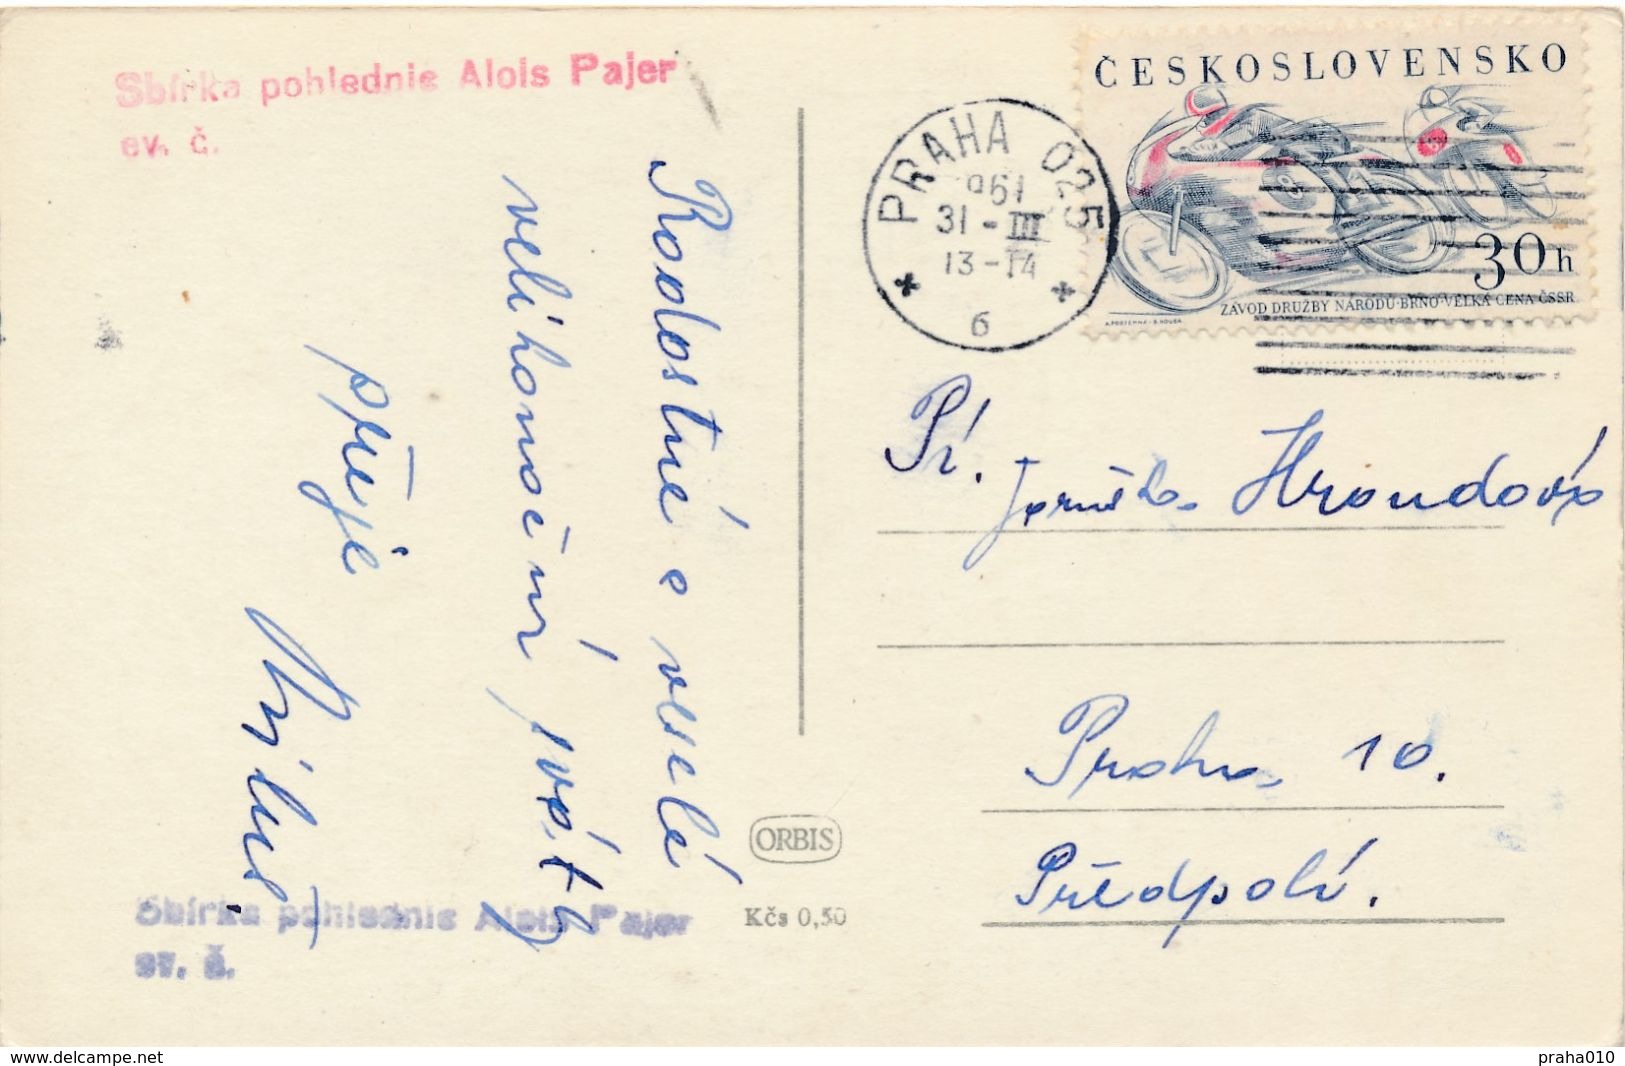 Sbírka pohlednic Alois Pajer
ev. č.
Radostné a veselé
velikonoční sváty
přeje
ČESKOSLOVENSKO
30h
ZÁVOD DRUŽBY NÁRODŮ·BRNO·VELKÁ CENA ČSSR
PRAHA 025
961
31-III
13-14
6
Pí. Jarmilka Hrondová
Praha 10.
Předpolí.
ORBIS
Kčs 0,50
Sbírka pohlednic Alois Pajer
ev. č.
www.delcampe.net
praha010